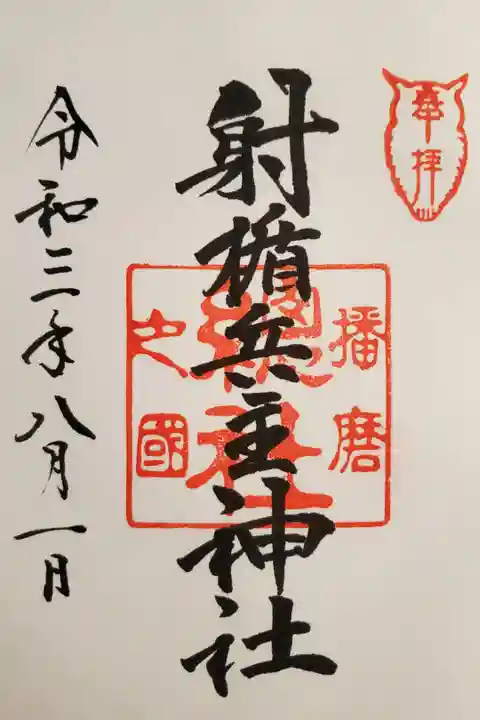 奉拝
射楯兵主神社
播磨
總社
之國
令和三年八月一日